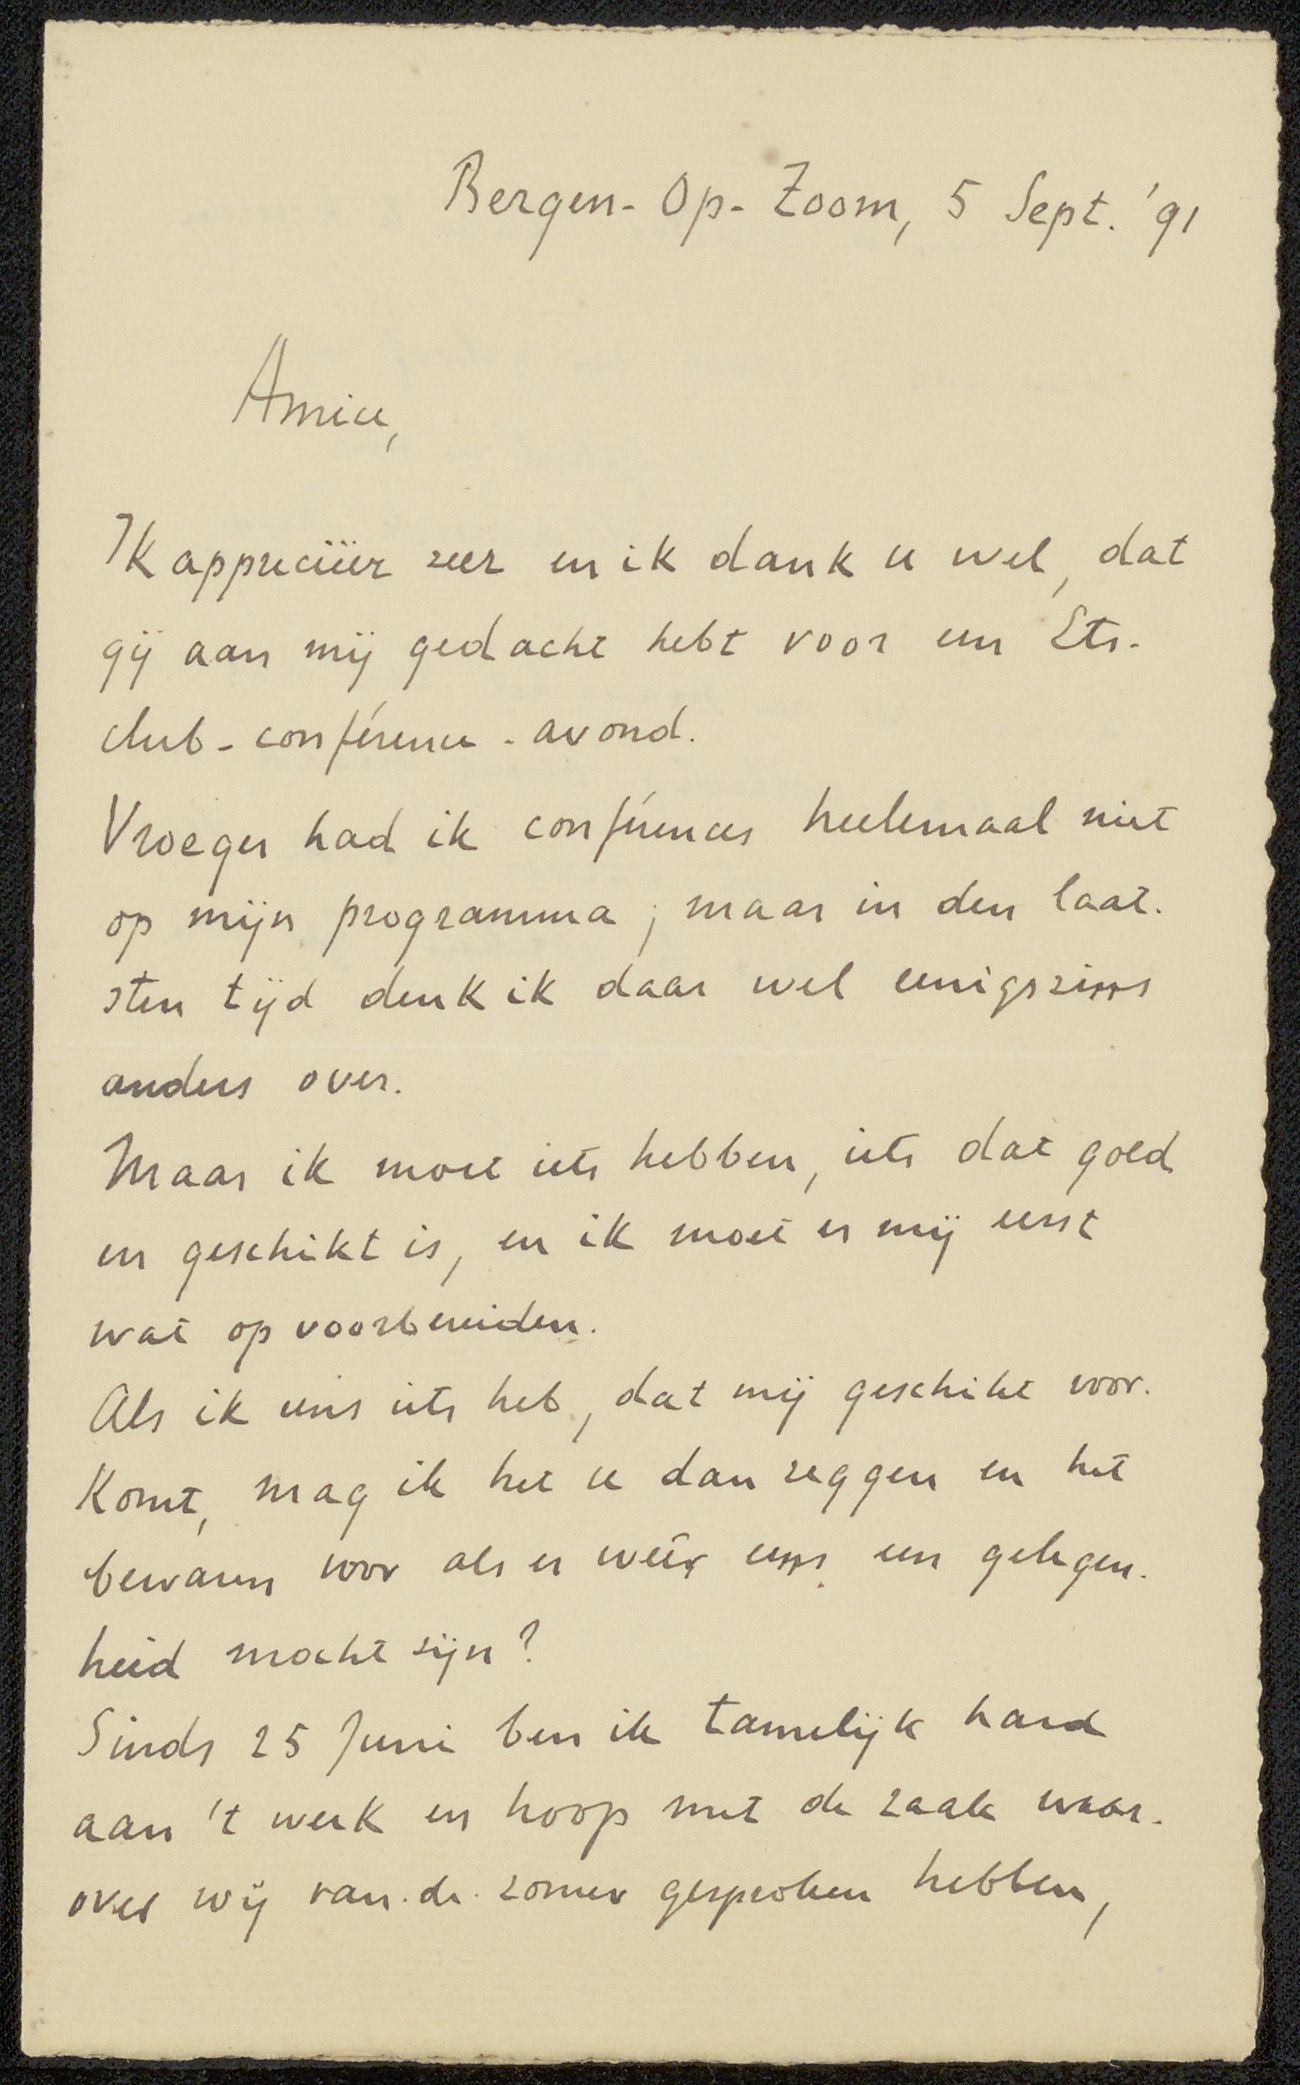 Bergen-Op-Zoom, 5 Sept. '91
Amice,
Ik apprecieer zeer en ik dank u wel, dat
gij aan mij gedacht hebt voor een Ets-
club-conférence-avond.
Vroeger had ik conférences heelemaal niet
op mijn programma; maar in den laat-
sten tijd denk ik daar wel eenigszins
anders over.
Maar ik moet iets hebben, iets dat goed
en geschikt is, en ik moet er mij eerst
wat op voorbereiden.
Als ik eens iets heb, dat mij geschikt voor-
komt, mag ik het u dan zeggen en het
bewaren voor als er weêr eens een gelegen-
heid mocht zijn?
Sinds 25 Juni ben ik tamelijk hard
aan 't werk en hoop met de zaak waar-
over wij van-de-zomer gesproken hebben,